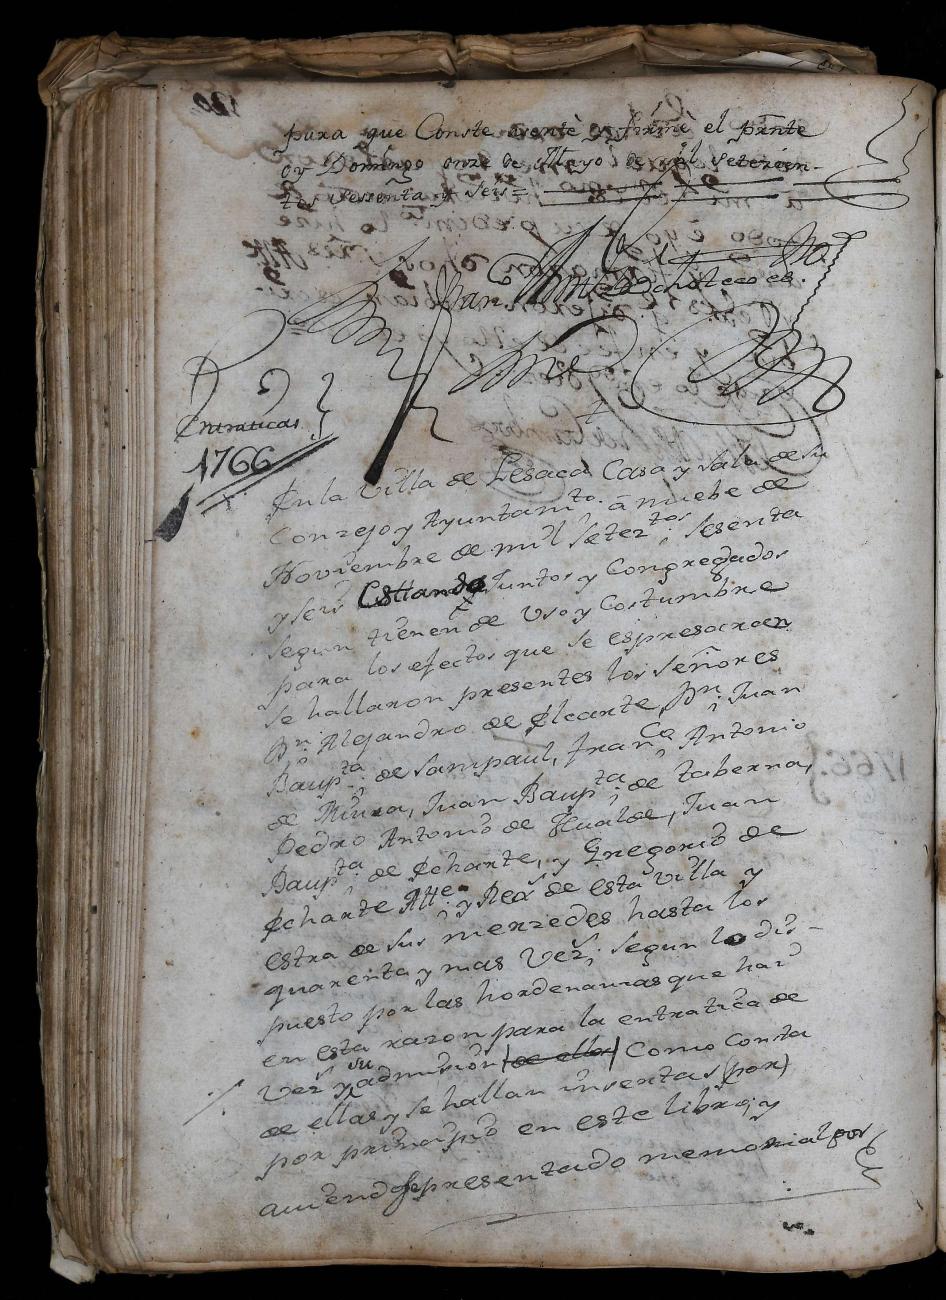 para que Conste asente y firmè el prnte
oy Domingo onze de Mayo de mil setecien-
tos sesenta y seis =
Juan
Entraticas
1766
En la Villa de Lesaca Casa y Sala de su
Conzejo y Ayuntamto. â nuebe de
Noviembre de mil seteztos. sesenta
y seis Esttando Juntos y Congregados
segun tienen de Uso y Costumbre
para los efectos que se espresaran
se hallaron presentes los señores
Dn. Alejandro de Elcarte, Dn. Juan
Baupta. de Sampaul, Franco. Antonio
de Mutra, Juan Baupta. de Taberna,
Pedro Antonio de Hualde, Juan
Baupta. de Echarte, y Gregorio de
Echarte Alte. y Rexs de esta villa y
estra de sus merzedes hasta los
quarenta y mas Vezs. segun lo dis-
puesto por las hordenanzas que hai
en esta razon para la entratica de
Vezs y su admision (de ellos) Como Consta
de ellas y se hallan insertas (por)
por prinzipio en este libro; y
aviendose presentado memorial por